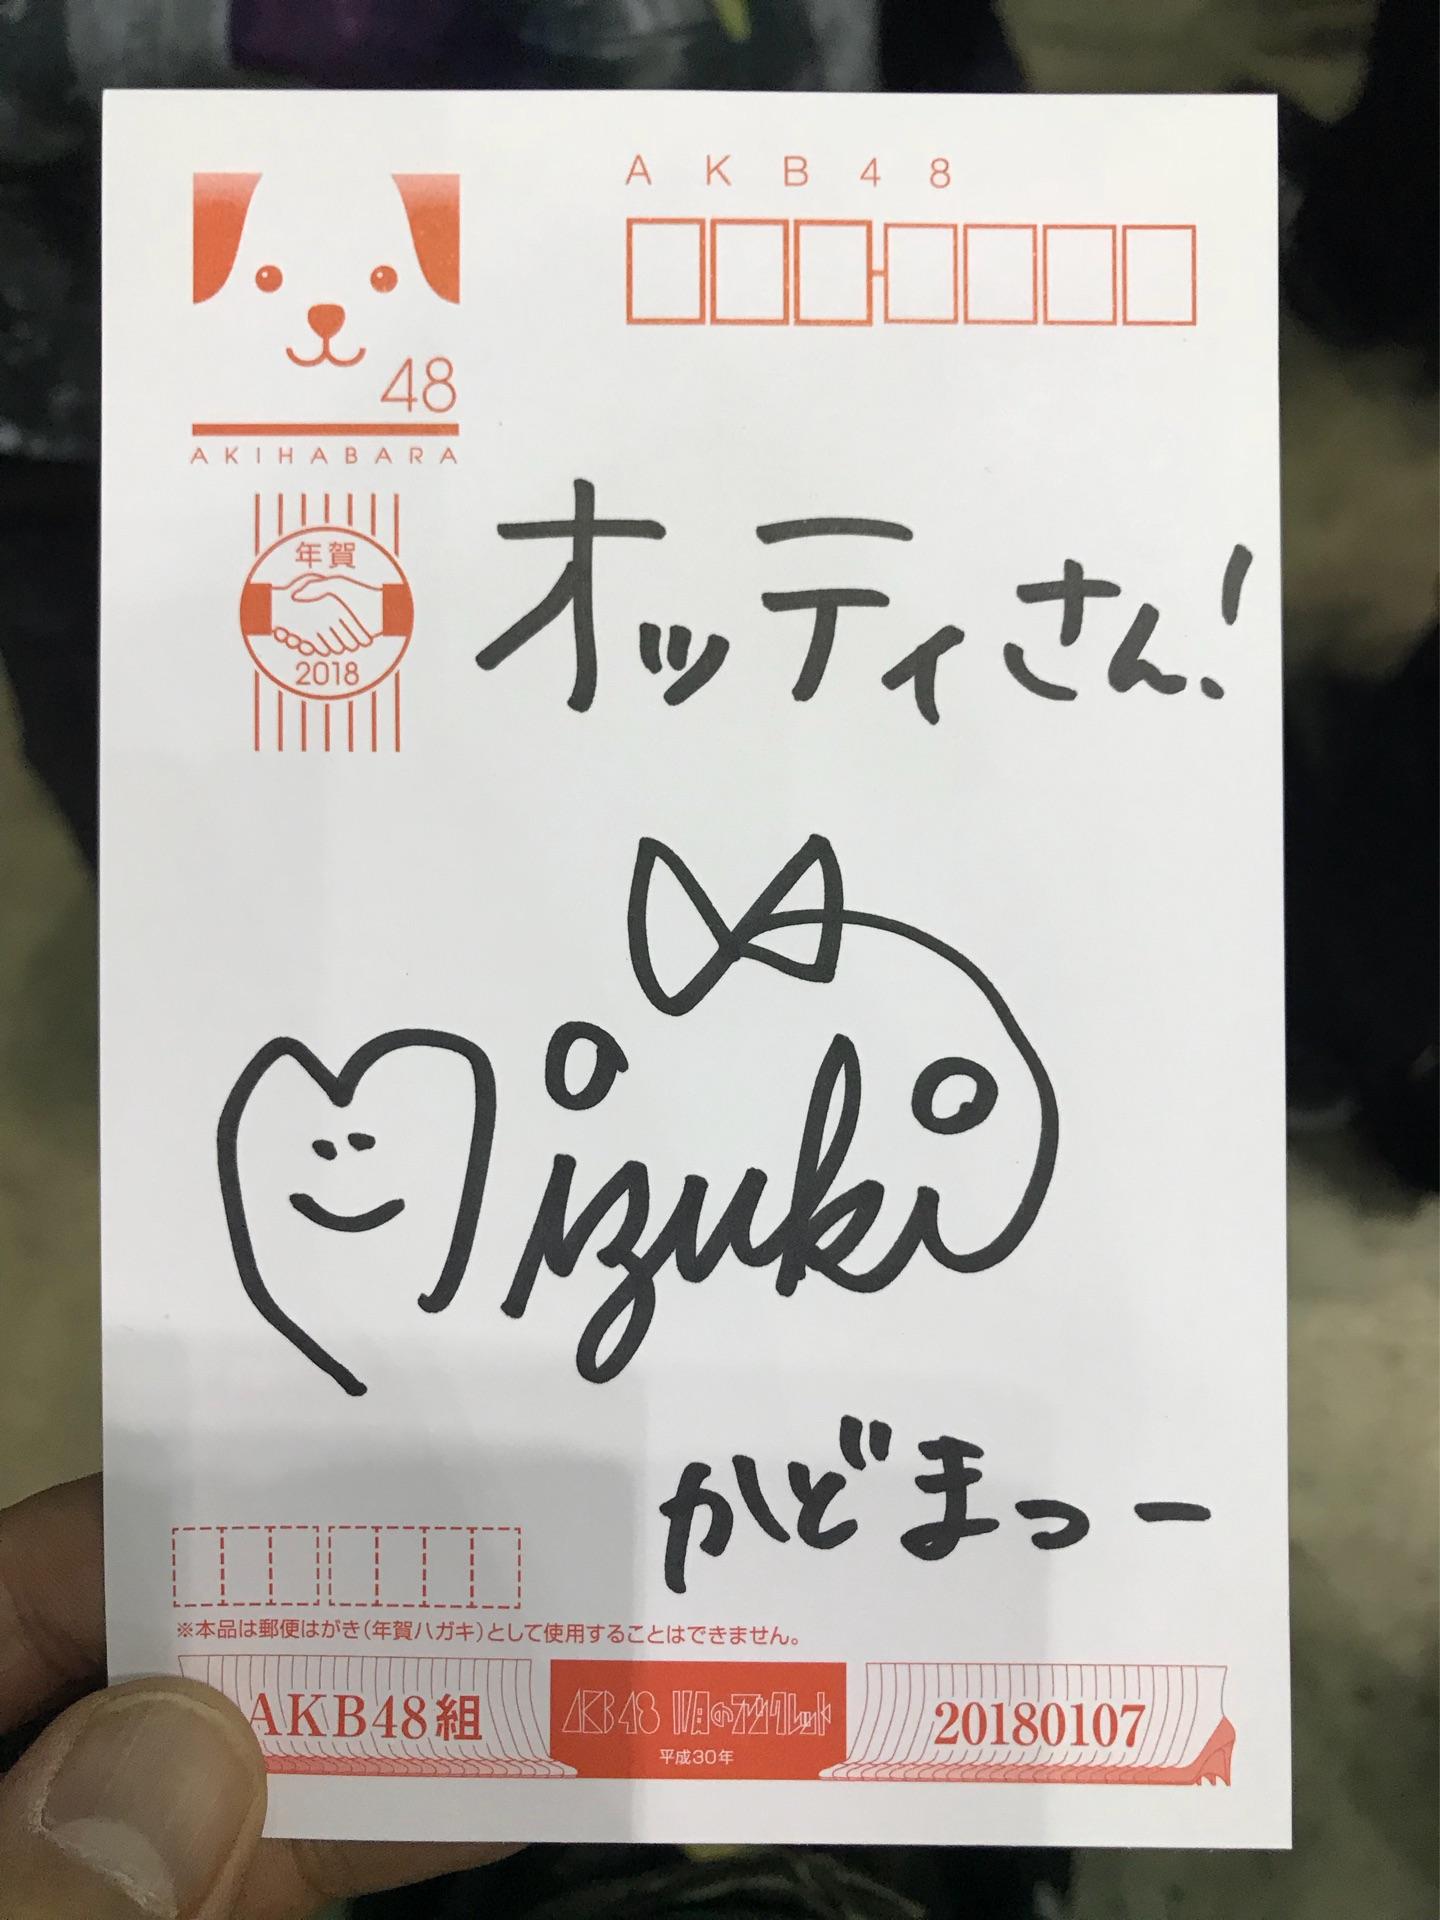 AKB48
48
AKIHABARA
年賀
2018
オッティさん!
Mizuki
かどまつー
※本品は郵便はがき(年賀ハガキ)として使用することはできません。
AKB48組
AKB48 11月のアンクレット
平成30年
20180107